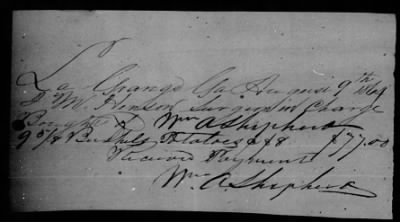 La Grange Ga August 9th 1864
D. M. Henson Surgeon in Charge
Bought of Wm A Shepherd
9 5/8 Bushels Potatoes a $8 $77.00
Received Payment
Wm A Shepherd